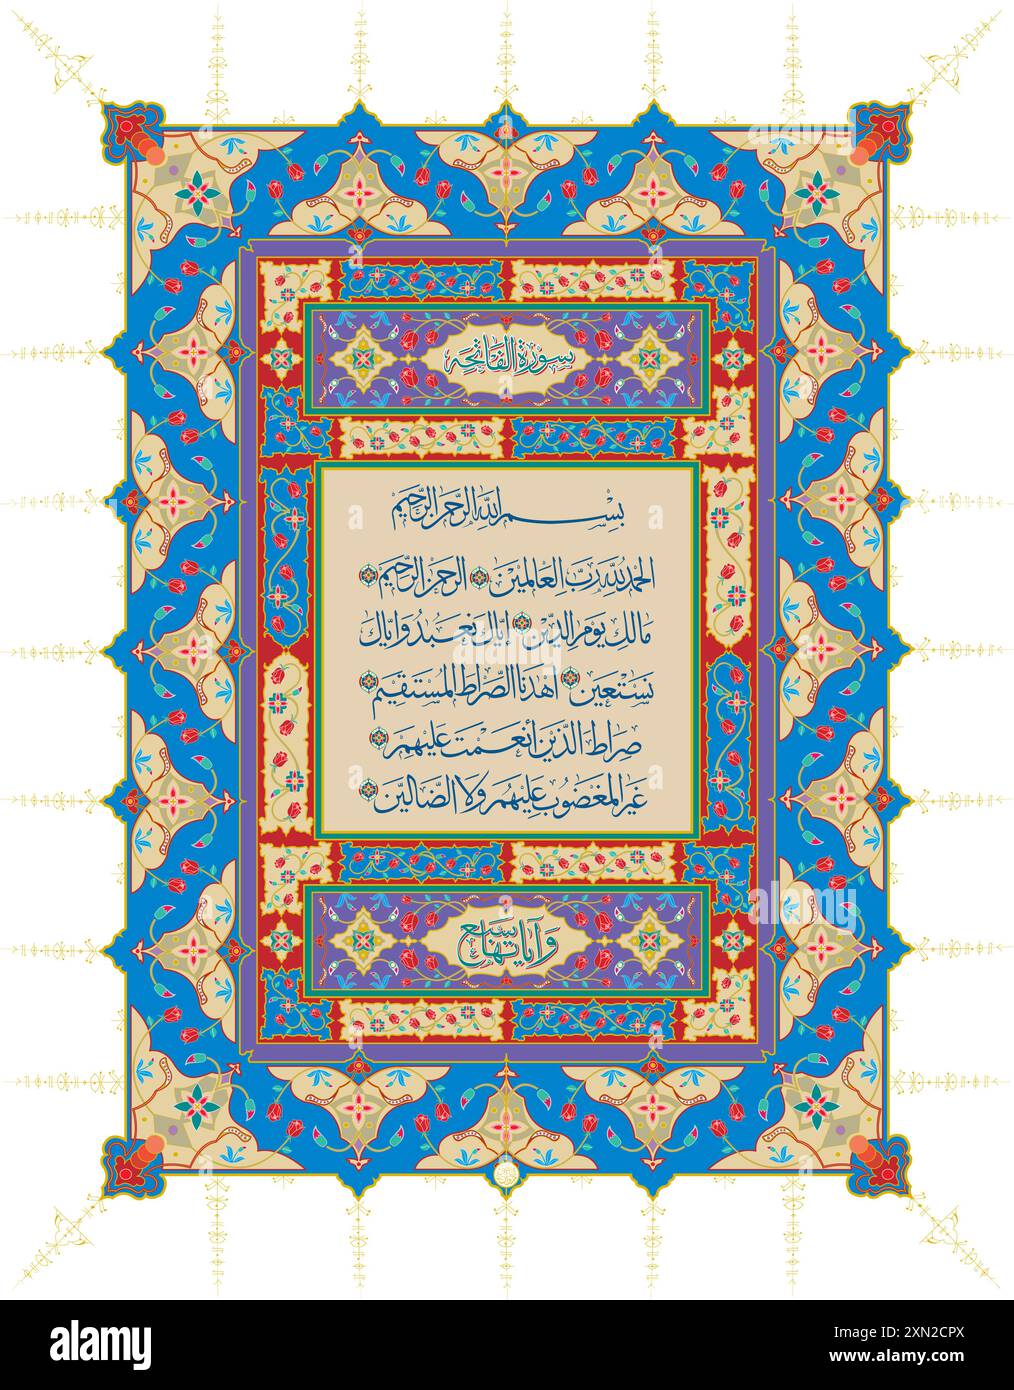 سورة الفاتحه
بسم الله الرحمن الرحيم
الحمد لله رب العالمين الرحمن الرحيم
مالك يوم الدين إياك نعبد وإياك
نستعين اهدنا الصراط المستقيم
صراط الذين أنعمت عليهم
غير المغضوب عليهم ولا الضالين
وآياتها سبع
alamy
alamy
Image ID: 2XN2CPX
www.alamy.com